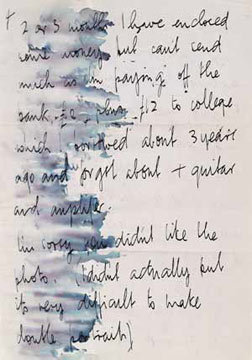 2 or 3 months I have enclosed
some money but can't send
much as I'm paying off the
bank £2, plus £12 to college
which I borrowed about 3 years
ago and forgot about + guitar
and amplifier.
I'm sorry you didn't like the
photo. (I didn't actually but
its very difficult to make
double portraits)